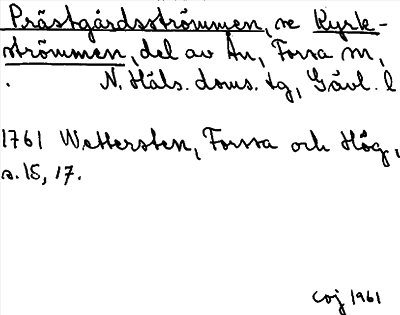 Prästgårdsströmmen, se Kyrk-
strömmen, del av Ån, Forsa sn,
N. Häls. doms. tg, Gävl. l
1761 Wettersten, Forssa och Hög,
s. 15, 17.
COJ 1961